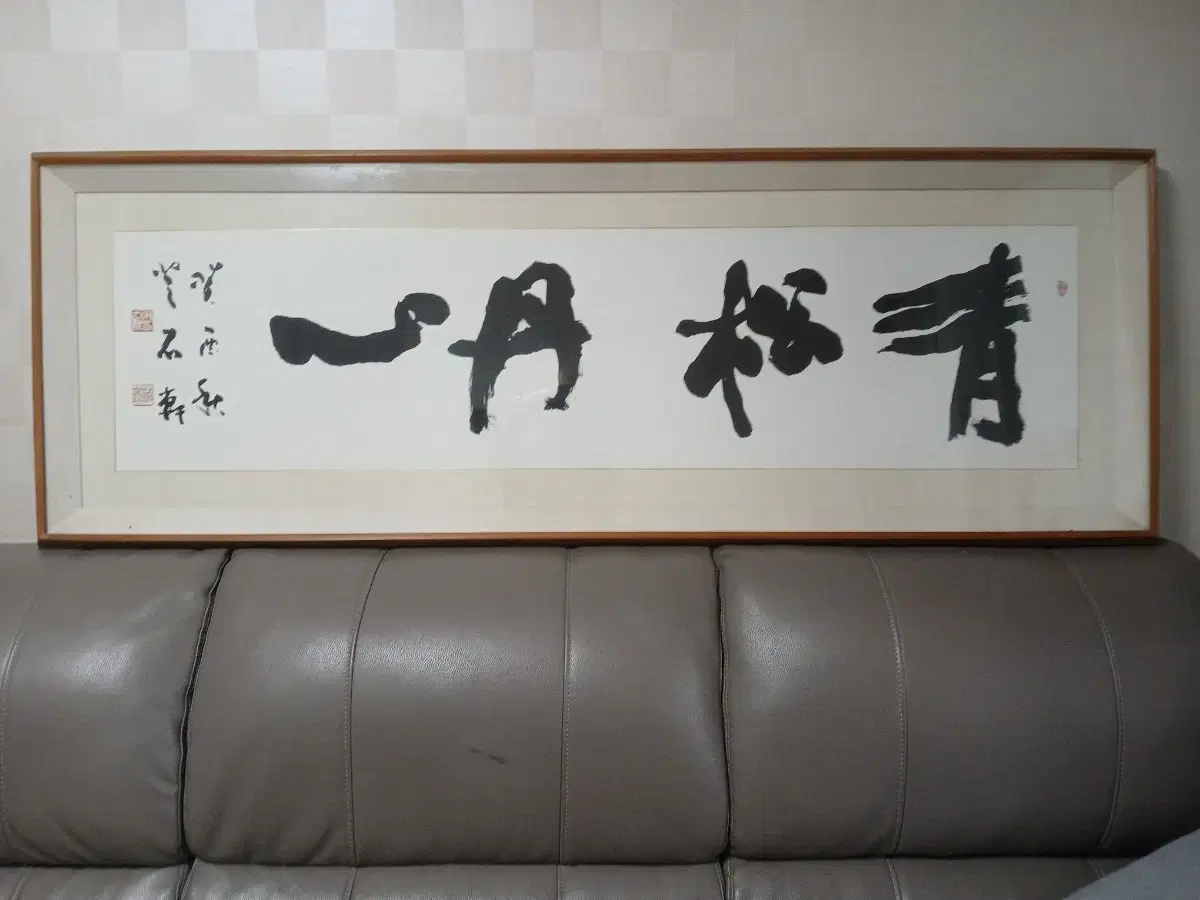 青松丹心
癸酉秋
石軒